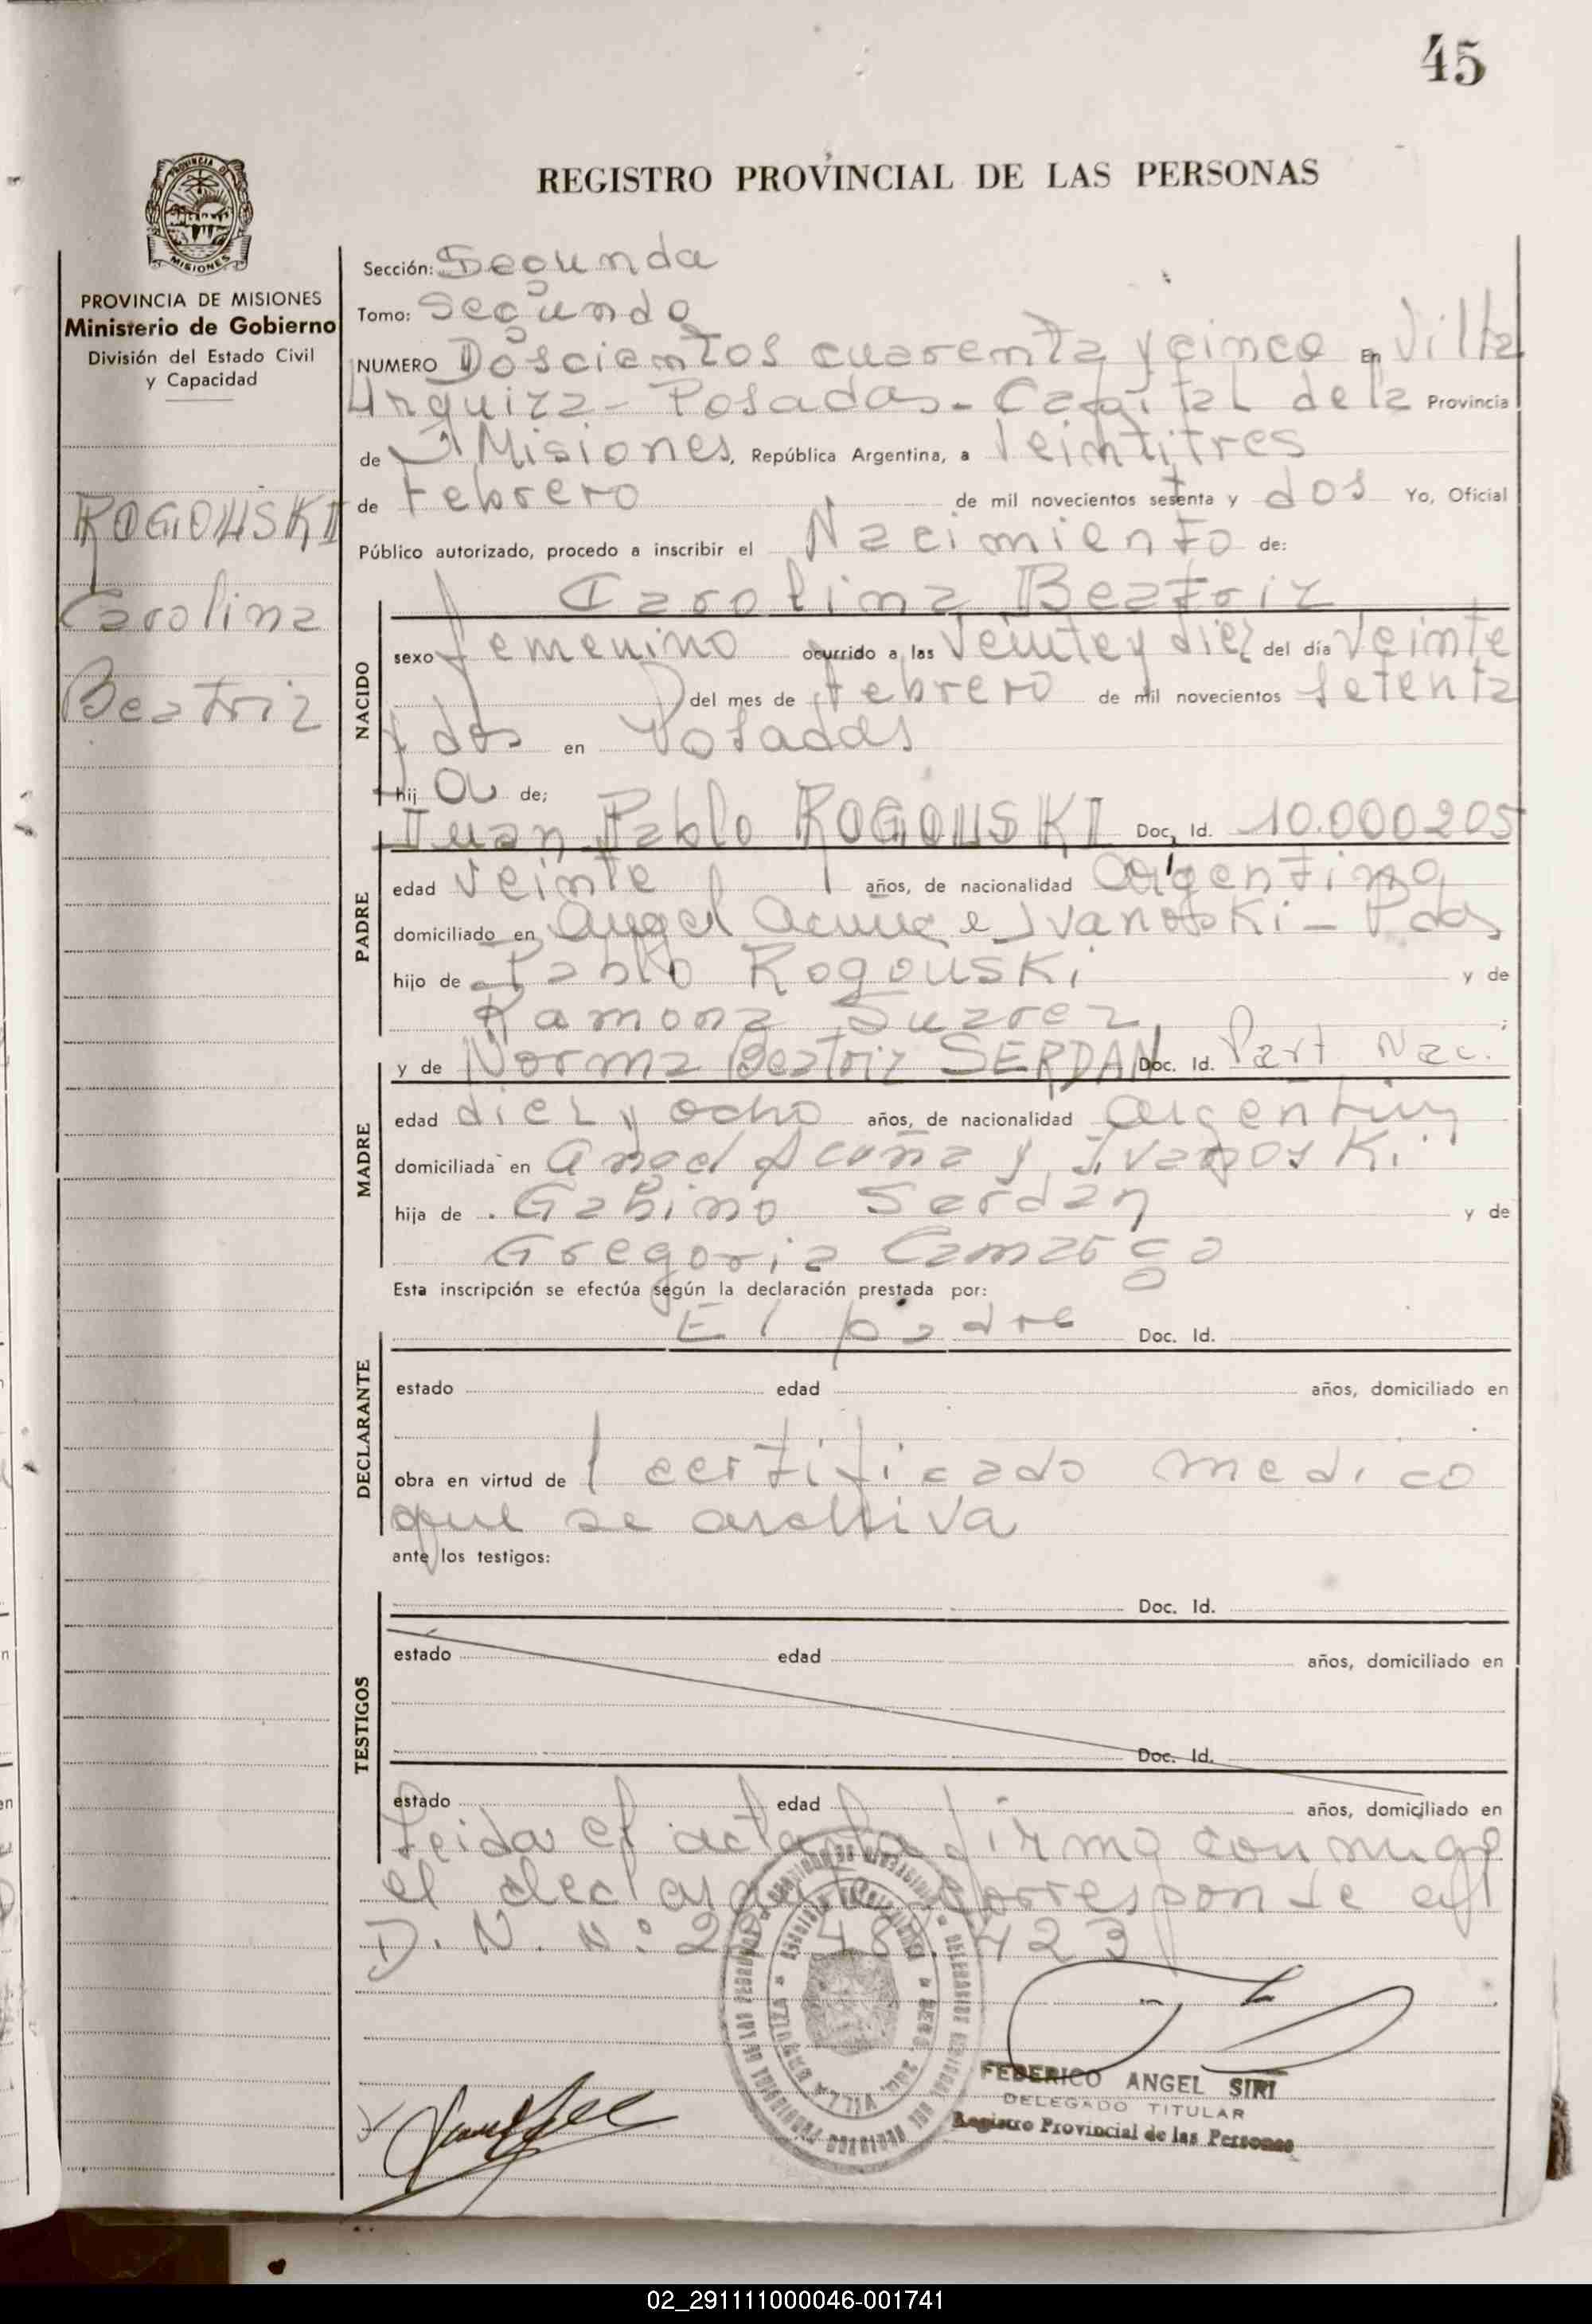 45
REGISTRO PROVINCIAL DE LAS PERSONAS
PROVINCIA DE MISIONES
Ministerio de Gobierno
División del Estado Civil
y Capacidad
ROGOUSKI
Carolina
Beatriz
Sección: Segunda
Tomo: Segundo
NUMERO Doscientos cuarenta y cinco En Villa
Urquiza - Posadas - Capital de la Provincia
de Misiones, República Argentina, a Veintitres
de Febrero de mil novecientos setenta y dos Yo, Oficial
Público autorizado, procedo a inscribir el Nacimiento de:
Carolina Beatriz
NACIDO
sexo femenino ocurrido a las veinte y diez del día veinte
del mes de febrero de mil novecientos setenta
y dos en Posadas
hij a de;
PADRE
Juan Pablo ROGOUSKI Doc. Id. 10.000205
edad veinte años, de nacionalidad argentina
domiciliado en Angel Acuña e Ivanoski - Pdas
hijo de Pablo Rogouski y de
Ramona Suarez ;
MADRE
y de Norma Beatriz SERDAN Doc. Id. Part Nac.
edad diez y ocho años, de nacionalidad argentina
domiciliada en Angel Acuña y Ivanoski
hija de Gabino Serdan y de
Gregoria Camargo
Esta inscripción se efectúa según la declaración prestada por:
DECLARANTE
El padre Doc. Id.
estado edad años, domiciliado en
obra en virtud de 1 certificado medico
que se archiva
ante los testigos:
TESTIGOS
Doc. Id.
estado edad años, domiciliado en
Doc. Id.
estado edad años, domiciliado en
Leida el acta la firma conmigo
el declarante corresponde el
D. N. Nº: 423
FEDERICO ANGEL SIRI
DELEGADO TITULAR
Registro Provincial de las Personas
02_291111000046-001741